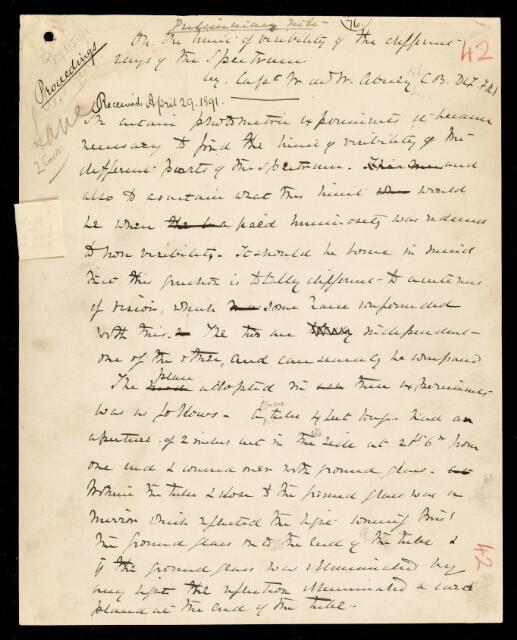 Preliminary Note
76
42
On the limit of visibility of the different
rays of the Spectrum
by Capt W. de W. Abney C.B. DCL FRS
Proceedings
Received April 29. 1891.
In certain photometric experiments it became
necessary to find the limit of visibility of the
different parts of the Spectrum. and
also to ascertain what this limit would
be when a fixed luminosity was reduced
to non visibility. It should be borne in mind
that this question is totally different to acuteness
of vision, which some have confounded
with this. The two are independent
one of the other, and can scarcely be compared
The plan adopted in these experiments
was as follows. A tube 4 feet long had an
aperture of 2 inches cut in the side at 2ft 6in from
one end & covered over with ground glass.
Within the tube & close to the ground glass was a
mirror which reflected the light coming thro'
the ground glass on to the end of the tube &
if the ground glass was illuminated by
any light the reflection illuminated a card
placed at the end of the tube.
42